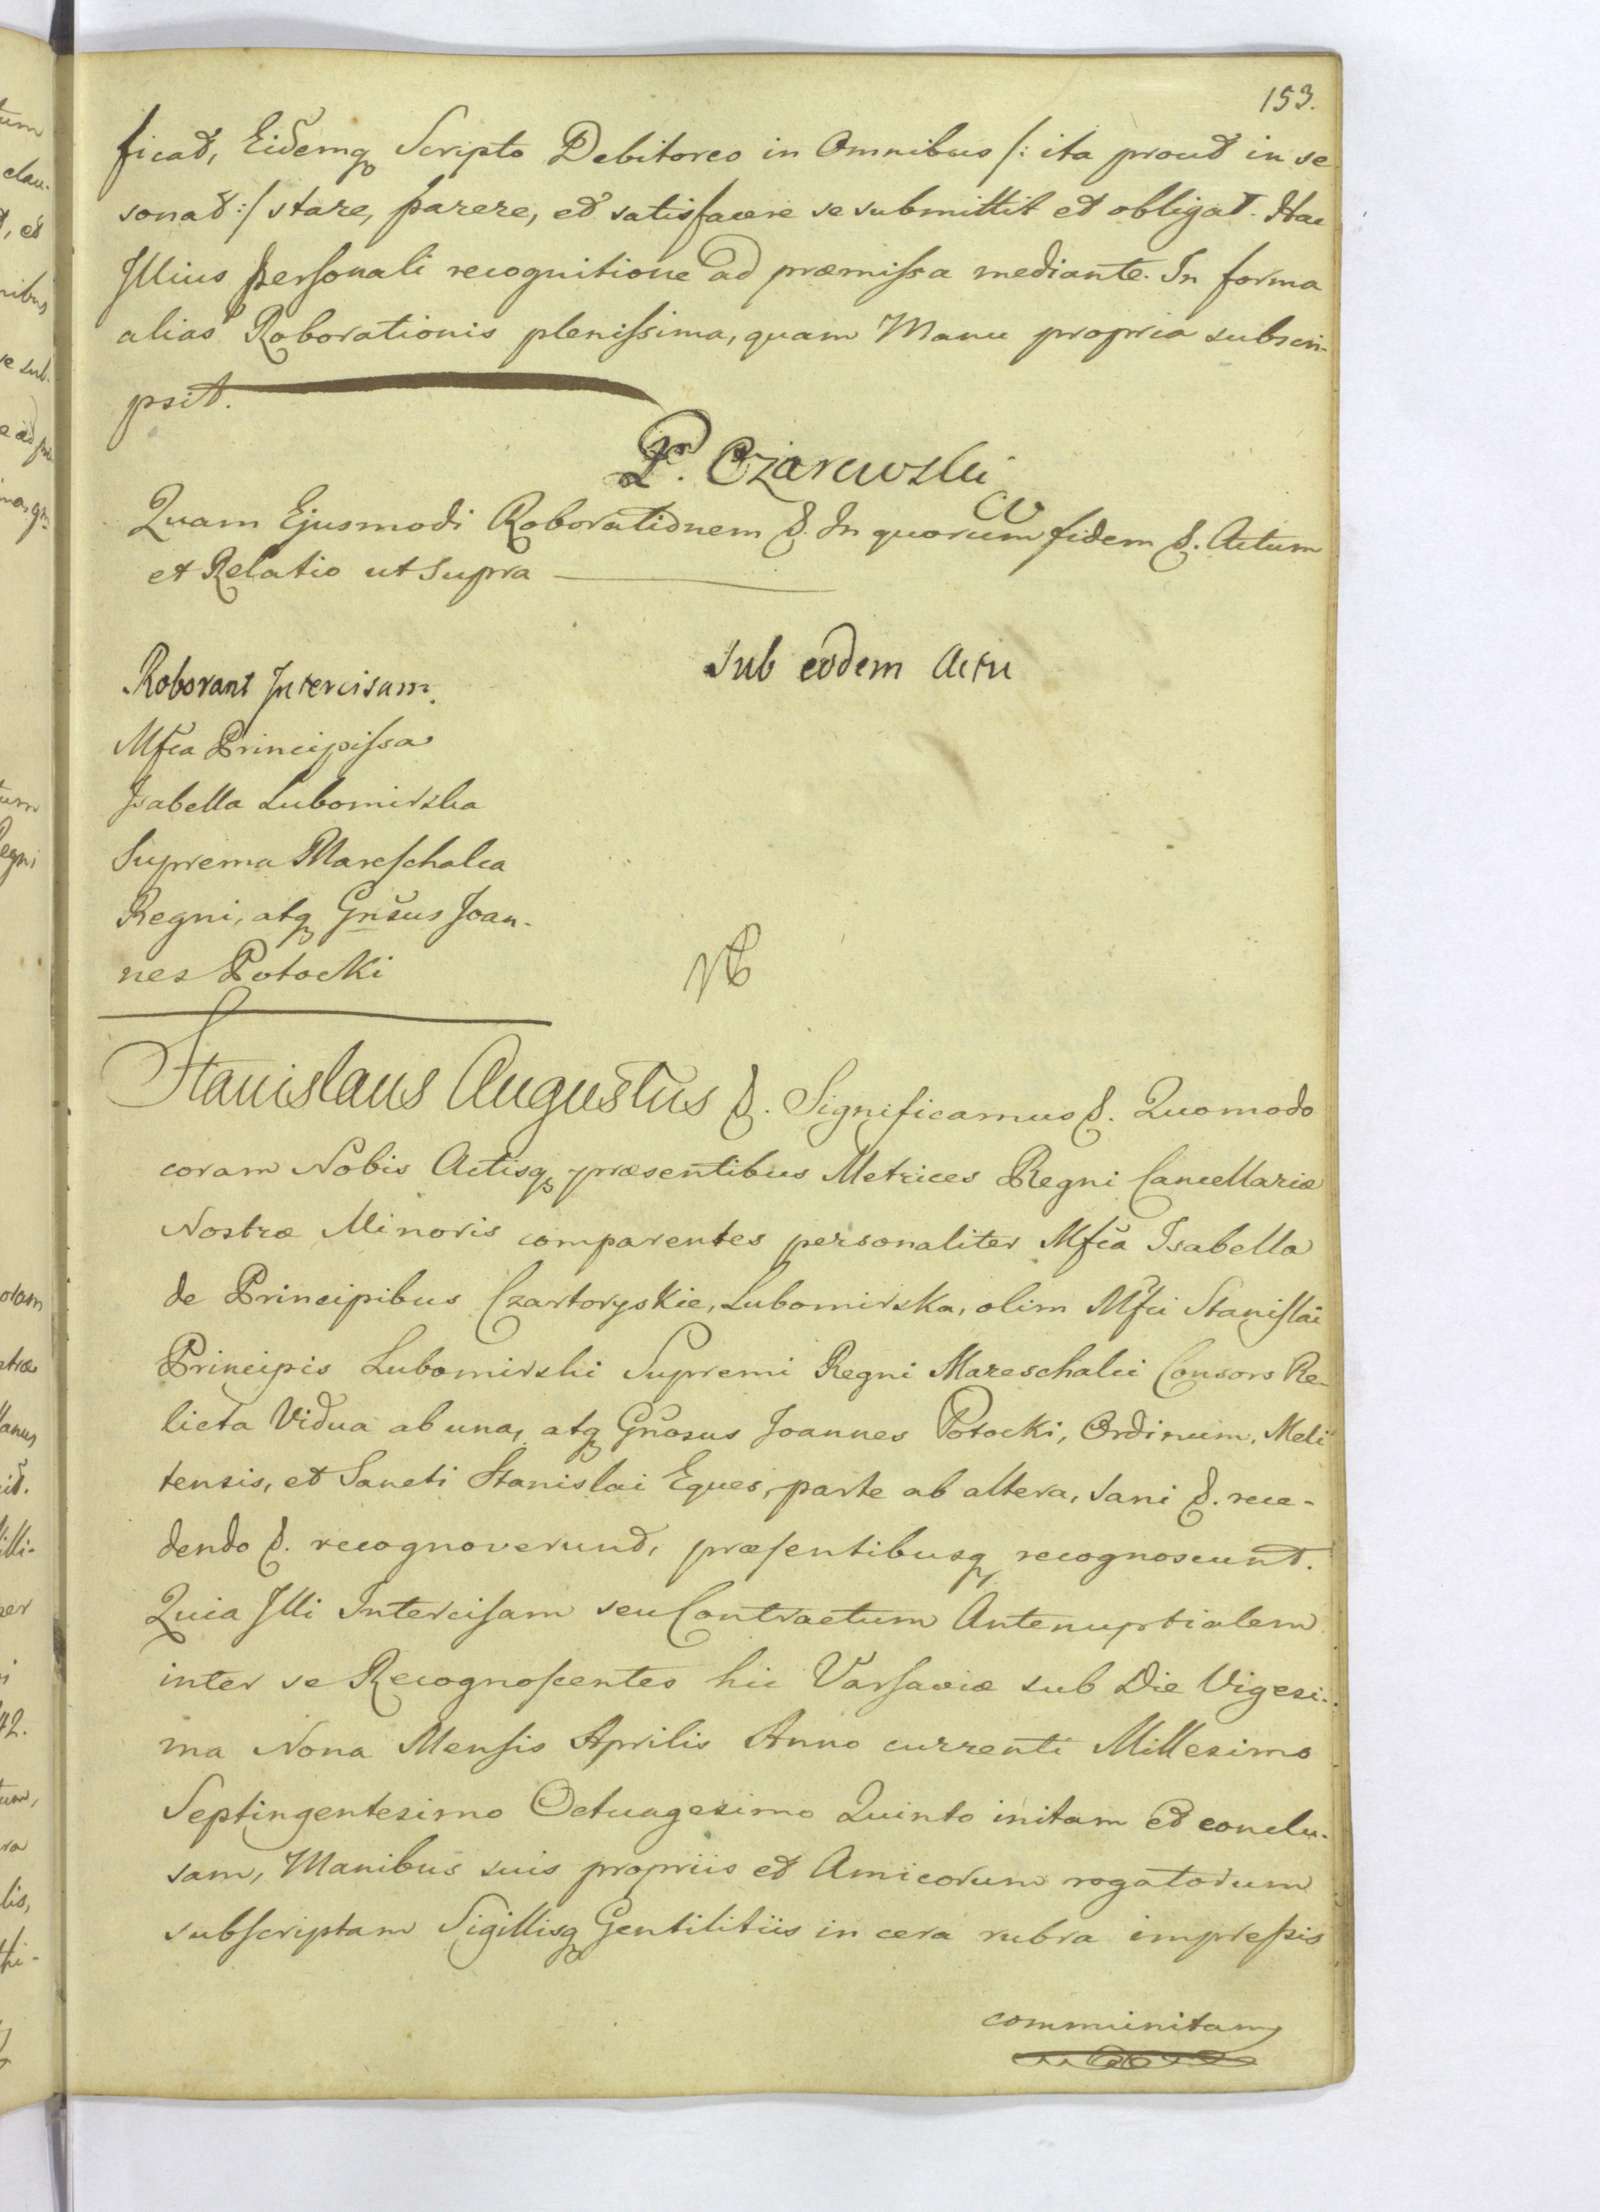 153.
ficat, Eidemq Scripto Debitoreo in Omnibus /: ita prout in se
sonat :/ stare, parere, et satisfacere se submittit et obligat. Hac
Illius personali recognitione ad præmissa mediante. In forma
alias Roborationis plenissima, quam Manu propria subscri-
psit.
P. Czarewski
Quam Ejusmodi Roborationem &. In quorum fidem &. Actum
et Relatio ut supra
Sub eodem Actu
Roborant Intercisam.
Mfca Principissa
Isabella Lubomirska
Suprema Mareschalca
Regni, atq Gnsus Joan-
nes Potocki
NB
Stanislaus Augustus &. Significamus &. Quomodo
coram Nobis Actisq præsentibus Metrices Regni Cancellariæ
Nostræ Minoris comparentes personaliter Mfca Isabella
de Principibus Czartoryskie, Lubomirska, olim Mfci Stanislai
Principis Lubomirski Supremi Regni Mareschalci Consors Re-
licta Vidua ab una, atq Gnosus Joannes Potocki, Ordinum, Meli
tensis, et Sancti Stanislai Eques, parte ab altera, sani &. rece-
dendo &. recognoverunt, præsentibusq recognoscunt.
Quia Illi Intercisam seu Contractum Antenuptialem
inter se Recognoscentes hic Varsaviæ sub Die Vigesi-
ma Nona Mensis Aprilis Anno currenti Millesimo
Septingentesimo Octuagesimo Quinto initam et conclu-
sam, Manibus suis propriis et Amicorum rogatorum
subscriptam Sigillisq Gentilitiis in cera rubra impressis
communitam